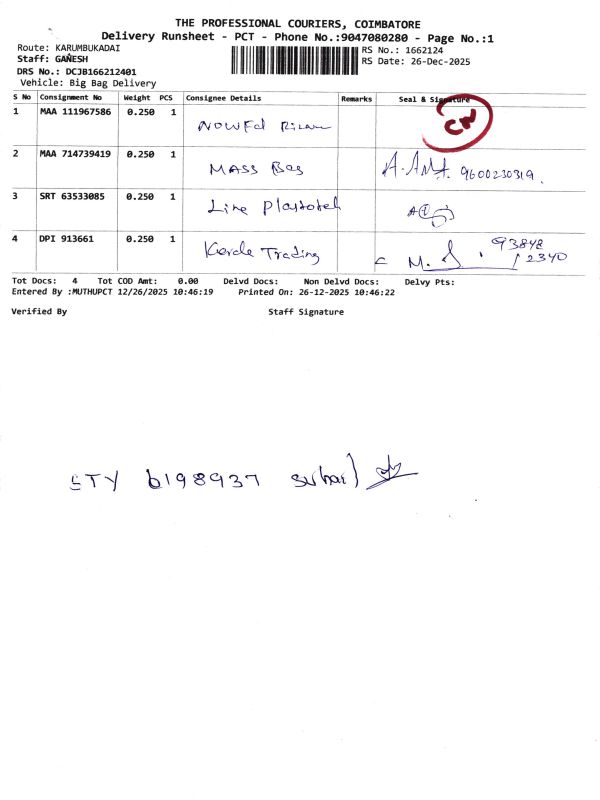 THE PROFESSIONAL COURIERS, COIMBATORE
Delivery Runsheet - PCT - Phone No.:9047080280 - Page No.:1
Route: KARUMBUKADAI
RS No.: 1662124
Staff: GANESH
RS Date: 26-Dec-2025
DRS No.: DCJB166212401
Vehicle: Big Bag Delivery
S No Consignment No Weight PCS Consignee Details Remarks Seal & Signature
1 MAA 111967586 0.250 1 CN
2 MAA 714739419 0.250 1 MASS Bag 9600230319.
3 SRT 63533085 0.250 1 Line
4 DPI 913661 0.250 1 Trading M. 93848
12340
Tot Docs: 4 Tot COD Amt: 0.00 Delvd Docs: Non Delvd Docs: Delvy Pts:
Entered By :MUTHUPCT 12/26/2025 10:46:19 Printed On: 26-12-2025 10:46:22
Verified By Staff Signature
STY 6198937 Suhail